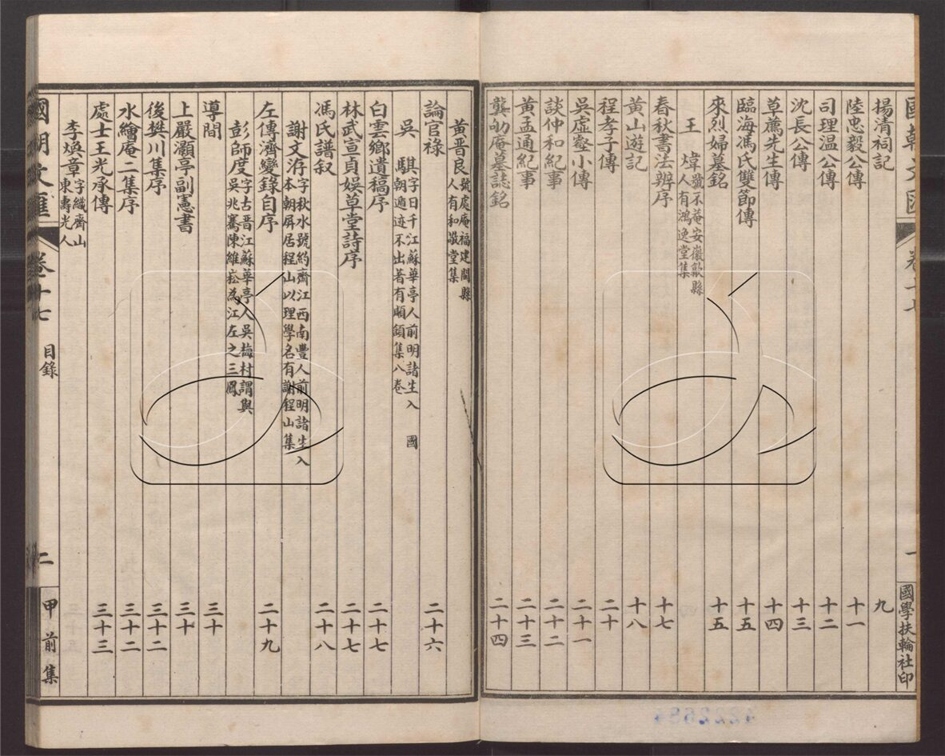 楊清祠記 九
陸忠毅公傳 十一
司理溫公傳 十二
沈長公傳 十三
草薦先生傳 十四
臨海馮氏雙節傳 十五
來烈婦墓銘 十五
王煒 號不菴安徽歙縣
人有鴻逸堂集
春秋書法辨序 十七
黃山遊記 十八
程孝子傳 二十
吳虛壑小傳 二十一
談仲和紀事 二十二
黃孟通紀事 二十三
龔劬庵墓誌銘 二十四
國學扶輪社印
黃晋良 號處庵福建閩縣
人有和敬堂集
論官祿 二十六
吳騏 字日千江蘇華亭人前明諸生入 國
朝遁迹不出著有顑頷集八卷
白雲鄉遺稿序 二十七
林武宣貞娛草堂詩序 二十七
馮氏譜叙 二十八
謝文洊 字秋水號約齋江西南豐人前明諸生入
本朝屏居程山以理學名有謝程山集
左傳濟變錄自序 二十九
彭師度 字古晋江蘇華亭人吳梅村謂與
吳兆騫陳維崧為江左之三鳳
導聞 三十
上嚴灝亭副憲書 三十
後樊川集序 三十二
水繪庵二集序 三十二
處士王光承傳 三十三
李煥章 字織齋山
東壽光人
國朝文匯 卷十七 目錄 二 甲前集